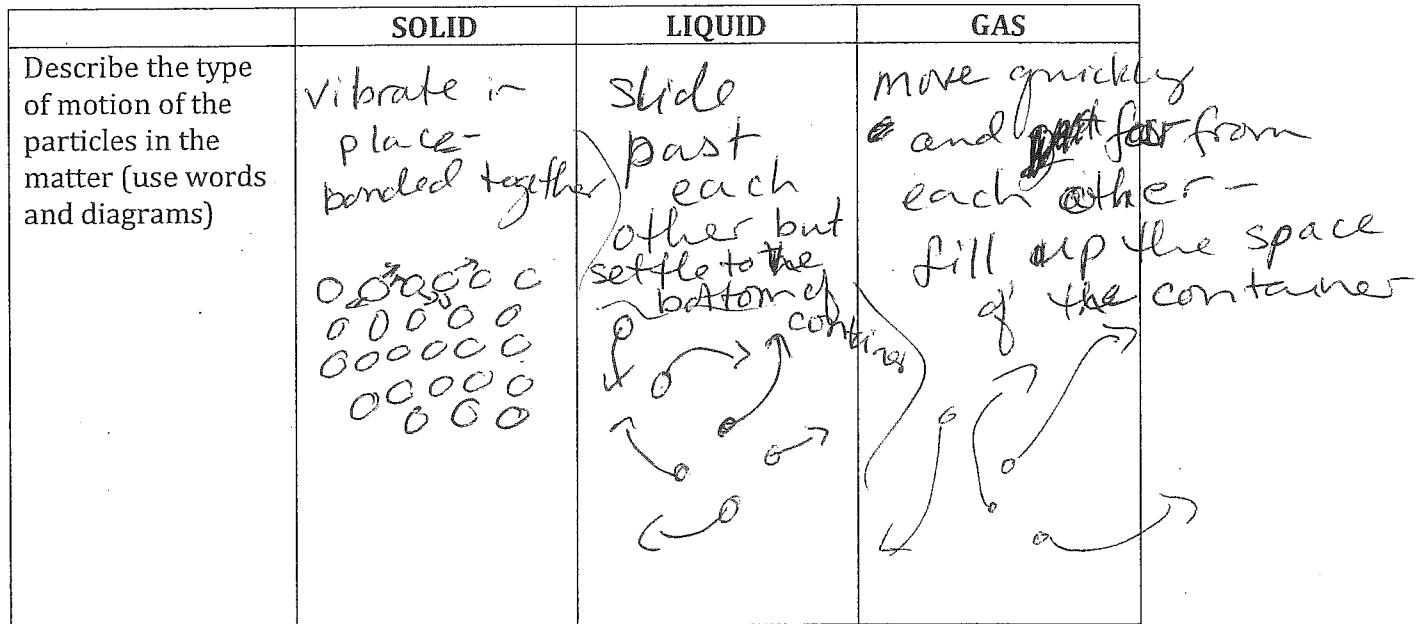 SOLID LIQUID GAS
Describe the type
of motion of the
particles in the
matter (use words
and diagrams)
vibrate in
place-
bonded together
slide
past
each
other but
settle to the
bottom of
move quickly
and far from
each other -
fill up the space
of the container